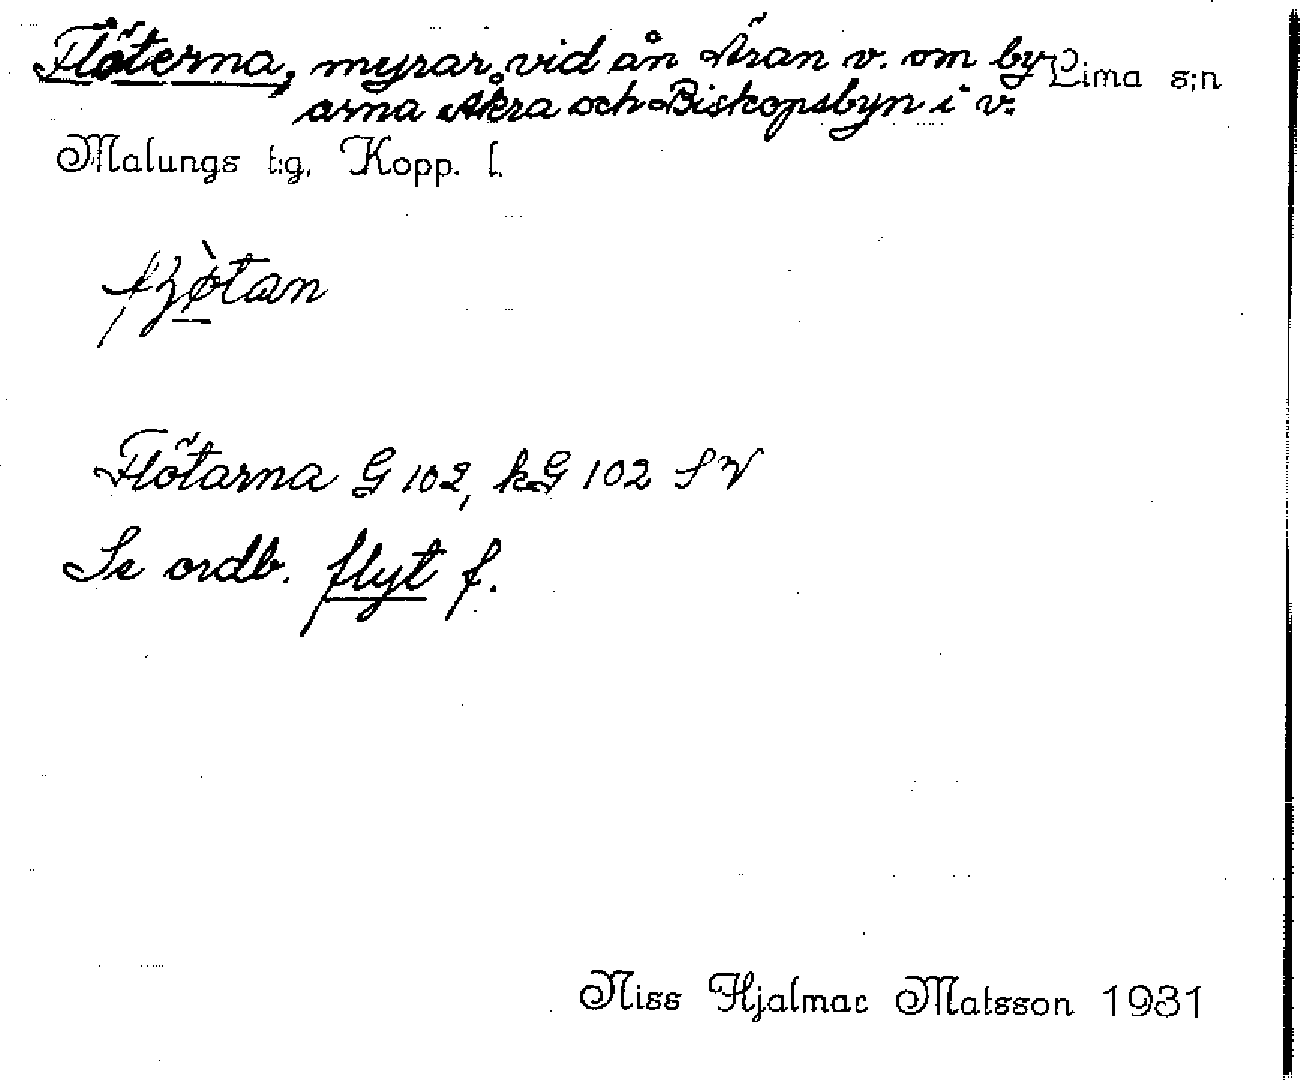 Flöterna, myrar vid ån Äran v. om by Lima s:n
arna Åkra och Biskopsbyn i v.
Malungs t:g, Kopp. l.
Flötarna G 102, kG 102 SV
Se ordb. flyt f.
Niss Hjalmar Matsson 1931